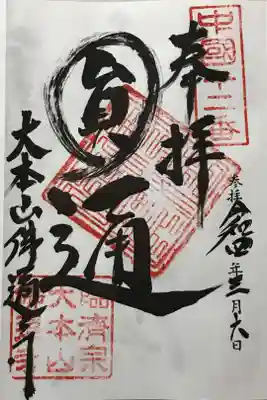 中國十二番
奉拝
圓通
参拝
年
月六日
大本山佛通寺
臨濟宗
大本山
佛通寺